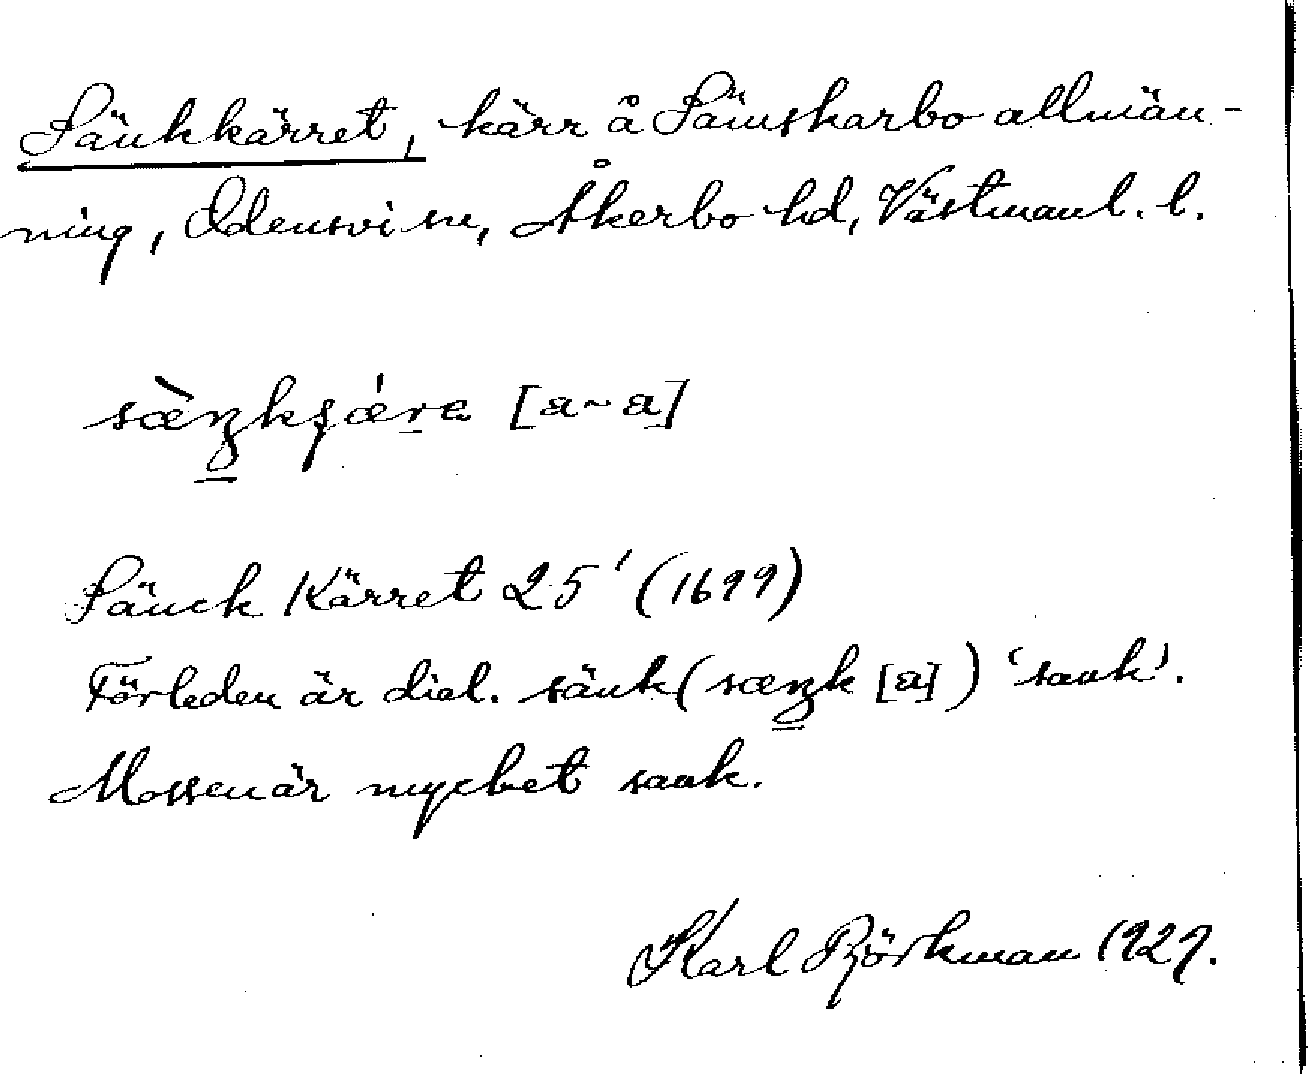 Sänkkärret, kärr å Sämskarbo allmän-
ning, Odensvi sn, Åkerbo hd, Västmanl. l.
sæ̀ŋkʂǽre [a~a]
Sänck Kärret 25' (1699)
Förleden är dial. sänk (sæŋk [a]) 'sank'.
Mossen är mycket sank.
Karl Björkman 1929.